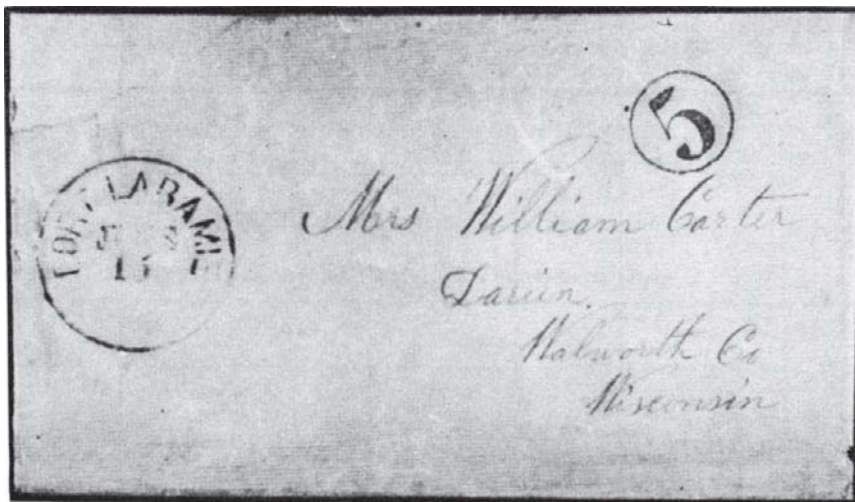 5
FORT LARAMIE
15
Mrs William Carter
Darien.
Walworth Co
Wisconsin